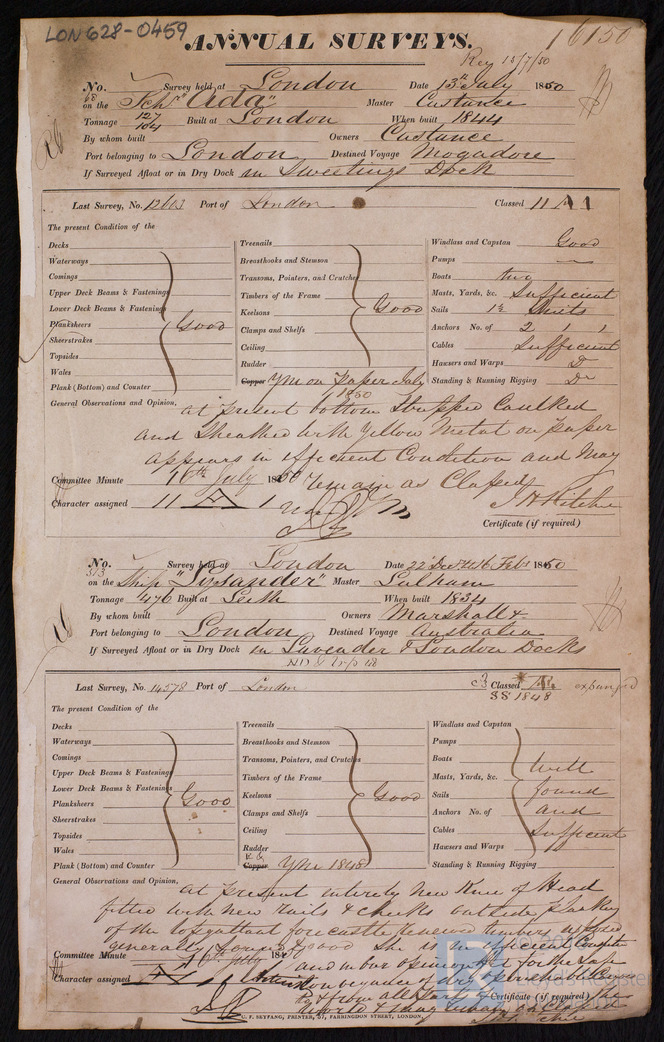 LON 628-0459
ANNUAL SURVEYS.
16150
Rey 15/7/50
No. Survey held at London Date 13th July 1850
68 on the Schr "Ada" Master Custance
Tonnage 127 104 Built at London When built 1844
By whom built Owners Custance
Port belonging to London Destined Voyage Mogadore
If Surveyed Afloat or in Dry Dock in Sweetings Dock
Last Survey, No. 12603 Port of London Classed 11 A 1
The present Condition of the
Decks
Waterways
Comings
Upper Deck Beams & Fastenings
Lower Deck Beams & Fastenings
Planksheers Good
Sheerstrakes
Topsides
Wales
Plank (Bottom) and Counter
Treenails
Breasthooks and Stemson
Transoms, Pointers, and Crutches
Timbers of the Frame
Keelsons Good
Clamps and Shelfs
Ceiling
Rudder
Copper YM on Paper July
1850
Windlass and Capstan Good
Pumps
Boats two
Masts, Yards, &c. Sufficient
Sails 1½ Suits
Anchors No. of 2, 1, 1
Cables Sufficient
Hawsers and Warps Do
Standing & Running Rigging Do
General Observations and Opinion, at present bottom Stripped Caulked
and Sheathed with Yellow Metal on paper
appears in efficient Condition and May
Committee Minute 16th July 1850 remain as Classed
Character assigned 11 A 1 J H Ritchie
Certificate (if required)
No. Survey held at London Date 22 Dec 49 & 16 Feby 1850
513 on the Ship "Lysander" Master Lulham
Tonnage 476 Built at Leith When built 1834
By whom built Owners Marshall &
Port belonging to London Destined Voyage Australia
If Surveyed Afloat or in Dry Dock in Lavender & London Docks
Last Survey, No. 14578 Port of London Classed expunged
38 1848
The present Condition of the
Decks
Waterways
Comings
Upper Deck Beams & Fastenings
Lower Deck Beams & Fastenings
Planksheers Good
Sheerstrakes
Topsides
Wales
Plank (Bottom) and Counter
Treenails
Breasthooks and Stemson
Transoms, Pointers, and Crutches
Timbers of the Frame
Keelsons Good
Clamps and Shelfs
Ceiling
Rudder
Copper YM 1848
Windlass and Capstan
Pumps
Boats Well
Masts, Yards, &c.
Sails found
Anchors No. of and
Cables Sufficient
Hawsers and Warps
Standing & Running Rigging
General Observations and Opinion, at present entirely new Knee of Head
fitted with new rails & cheeks outside planking
of the topgallant forecastle renewed timbers
generally found good She is in efficient Condition
Committee Minute 16th July 18 and in our opinion fit for the Safe
Character assigned conveyance of dry & perishable
to & from all parts of
Certificate (if required)
U. F. SEYFANG, PRINTER, 57, FARRINGDON STREET, LONDON.
Lloyd's Register